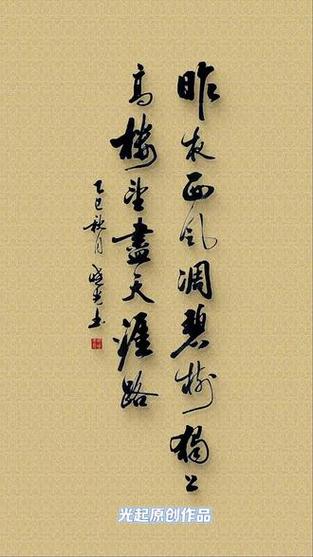 昨夜西风凋碧树獨上
高楼望盡天涯路
乙巳秋月
光起原创作品